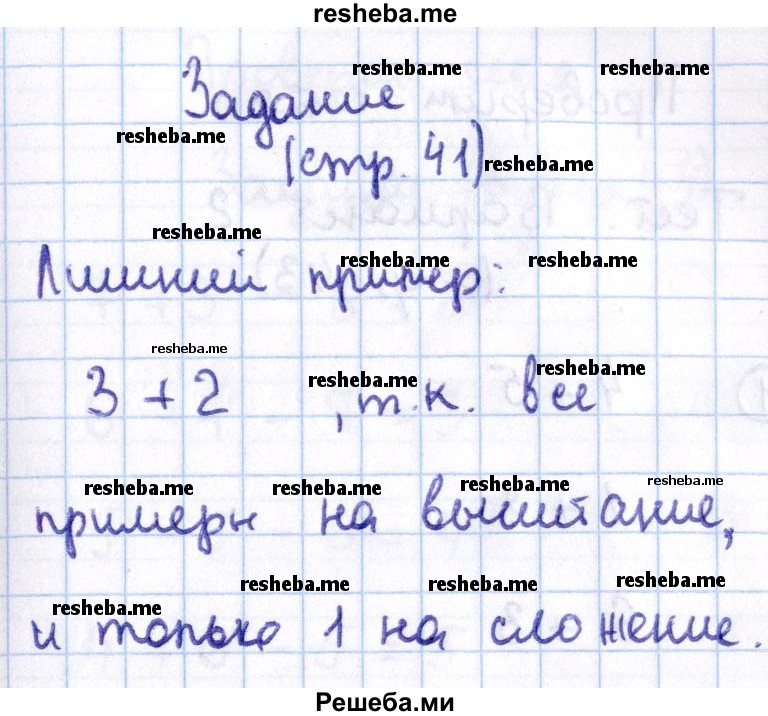 resheba.me
resheba.me resheba.me
Задание
resheba.me
(стр. 41) resheba.me
resheba.me
Лишний пример:
resheba.me resheba.me
resheba.me
resheba.me resheba.me
3 + 2 , т.к. все
resheba.me resheba.me resheba.me resheba.me
примеры на вычитание,
resheba.me resheba.me resheba.me
resheba.me
и только 1 на сложение.
Решеба.ми